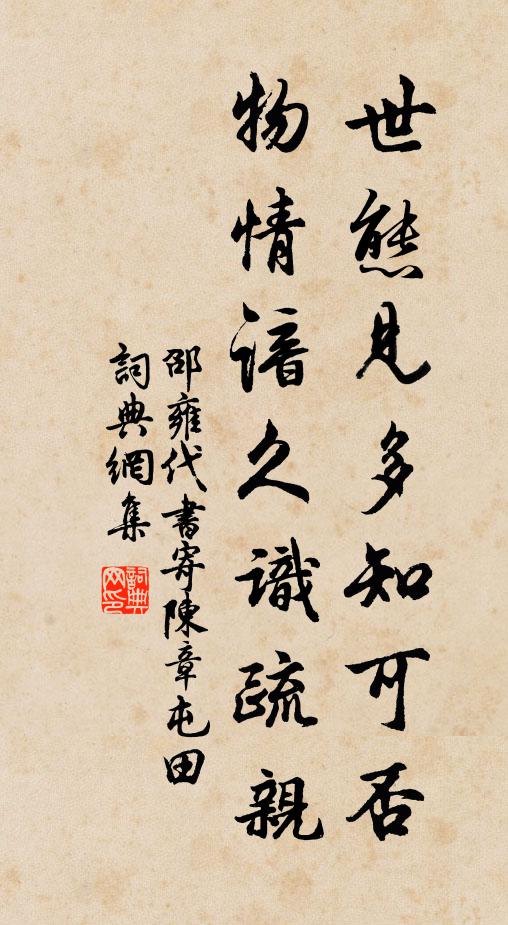 世態見多知可否
物情諳久識疏親
邵雍代書寄陳章屯田
詞典網集
詞典
网印